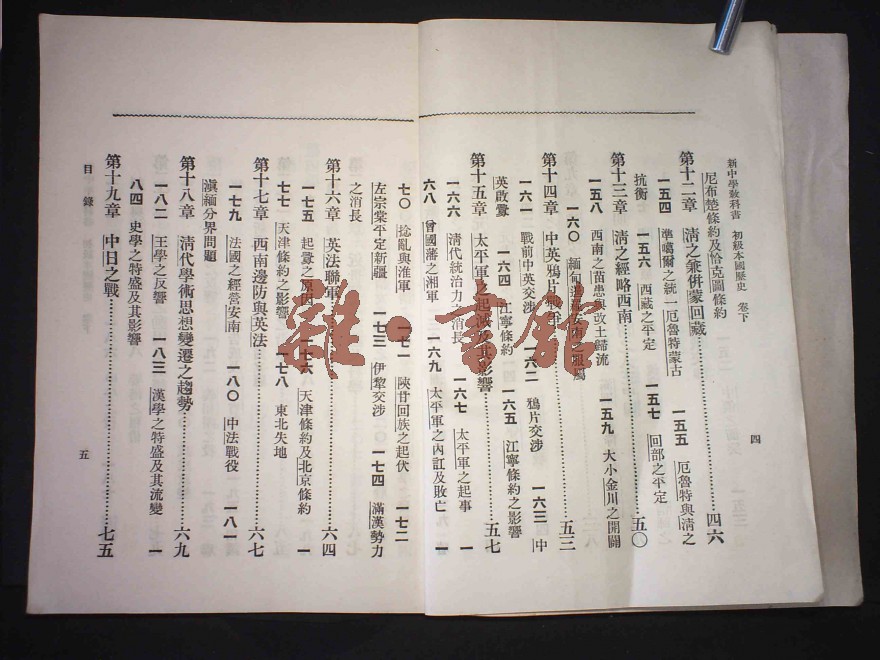 新中學教科書 初級本國歷史 卷下
尼布楚條約及恰克圖條約
第十二章 淸之兼併蒙回藏……四六
一五四 準噶爾之統一厄魯特蒙古 一五五 厄魯特與淸之
抗衡 一五六 西藏之平定 一五七 回部之平定
第十三章 淸之經略西南……五〇
一五八 西南之苗患與改土歸流 一五九 大小金川之開闢
一六〇 緬甸
第十四章 中英鴉片戰爭……五三
一六一 戰前中英交涉 一六二 鴉片交涉 一六三 中
英啟釁 一六四 江寧條約 一六五 江寧條約之影響
第十五章 太平軍之起滅及其影響……五七
一六六 淸代統治力之消長 一六七 太平軍之起事 一
六八 曾國藩之湘軍 一六九 太平軍之內訌及敗亡 一
四
七〇 捻亂與淮軍 一七一 陝甘回族之起伏 一七二
左宗棠平定新疆 一七三 伊犂交涉 一七四 滿漢勢力
之消長
第十六章 英法聯軍……六四
一七五 起釁之原因 一七六 天津條約及北京條約 一
七七 天津條約之影響 一七八 東北失地
第十七章 西南邊防與英法……六七
一七九 法國之經營安南 一八〇 中法戰役 一八一
滇緬分界問題
第十八章 淸代學術思想變遷之趨勢……六九
一八二 王學之反響 一八三 漢學之特盛及其流變 一
八四 史學之特盛及其影響
第十九章 中日之戰……七五
目錄
五
雜·書館